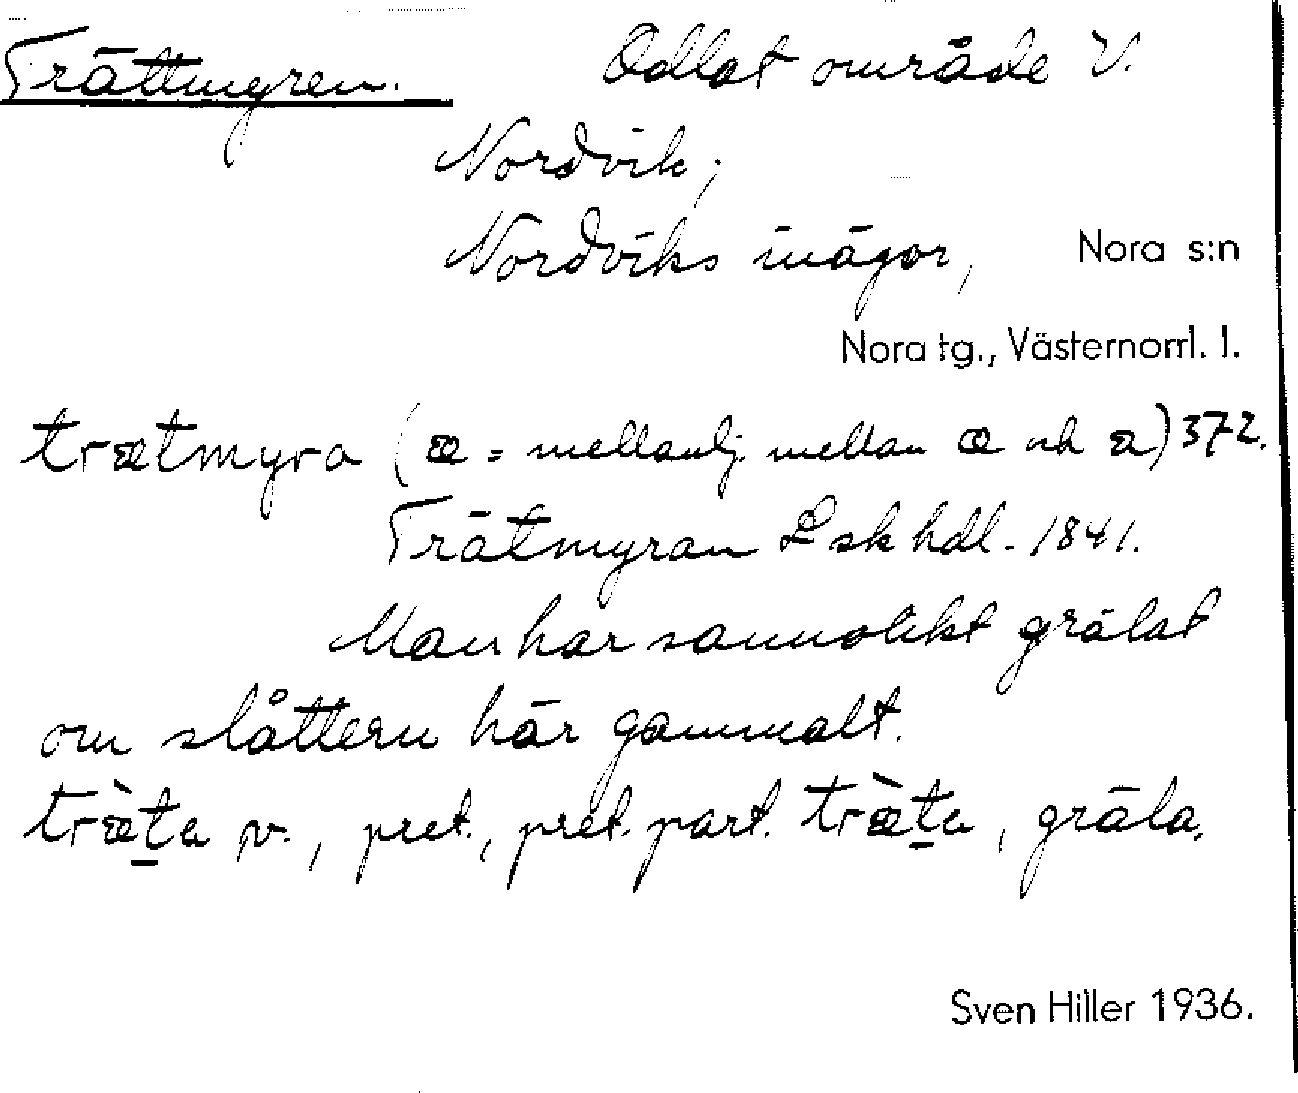 Trättmyren. Odlat område V.
Nordvik;
Nordviks inägor, Nora s:n
Nora tg., Västernorrl. l.
trætmyra (æ = mellanlj. mellan æ och a) 372.
Trätmyran Lsk hdl. 1841.
Man har sannolikt grälat
om slåttern här gammalt.
træ̀ta v., pret., pret. part. træ̀ta, gräla.
Sven Hiller 1936.